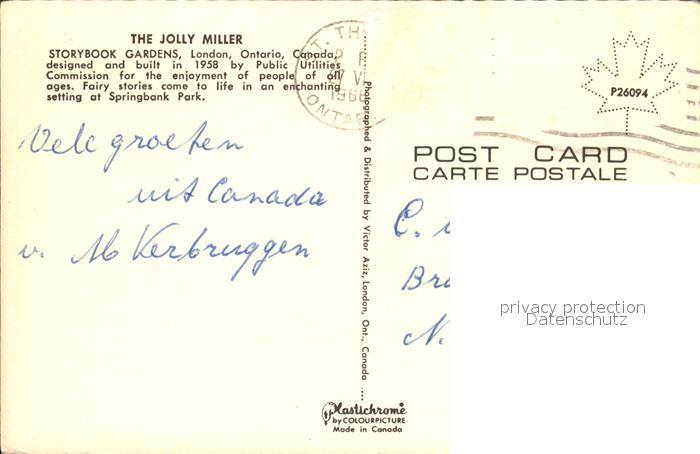 THE JOLLY MILLER
STORYBOOK GARDENS, London, Ontario, Canada,
designed and built in 1958 by Public Utilities
Commission for the enjoyment of people of all
ages. Fairy stories come to life in an enchanting
setting at Springbank Park.
Vele groeten
uit Canada
v. Kerbruggen
Photographed & Distributed by Victor Aziz, London, Ont., Canada
Plastichrome
by COLOURPICTURE
Made in Canada
T. TH
ONTAR
P26094
POST CARD
CARTE POSTALE
C.
Br
N.
privacy protection
Datenschutz